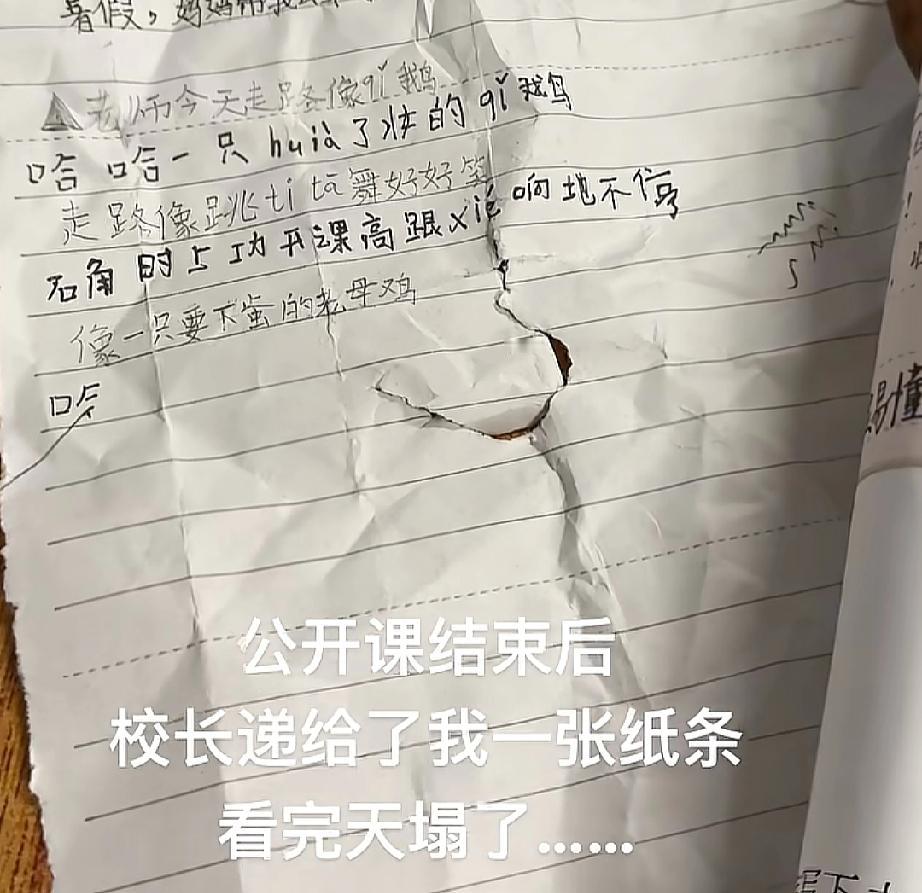 暑假，妈妈带我
老师今天走路像qǐ鹅
哈哈一只huià了妆的qǐ鹅
走路像跳tī tà舞好好笑
石角时上功开课高跟xié响地不信
像一只要下蛋的老母鸡
哈
易懂
公开课结束后
校长递给了我一张纸条
看完天塌了……